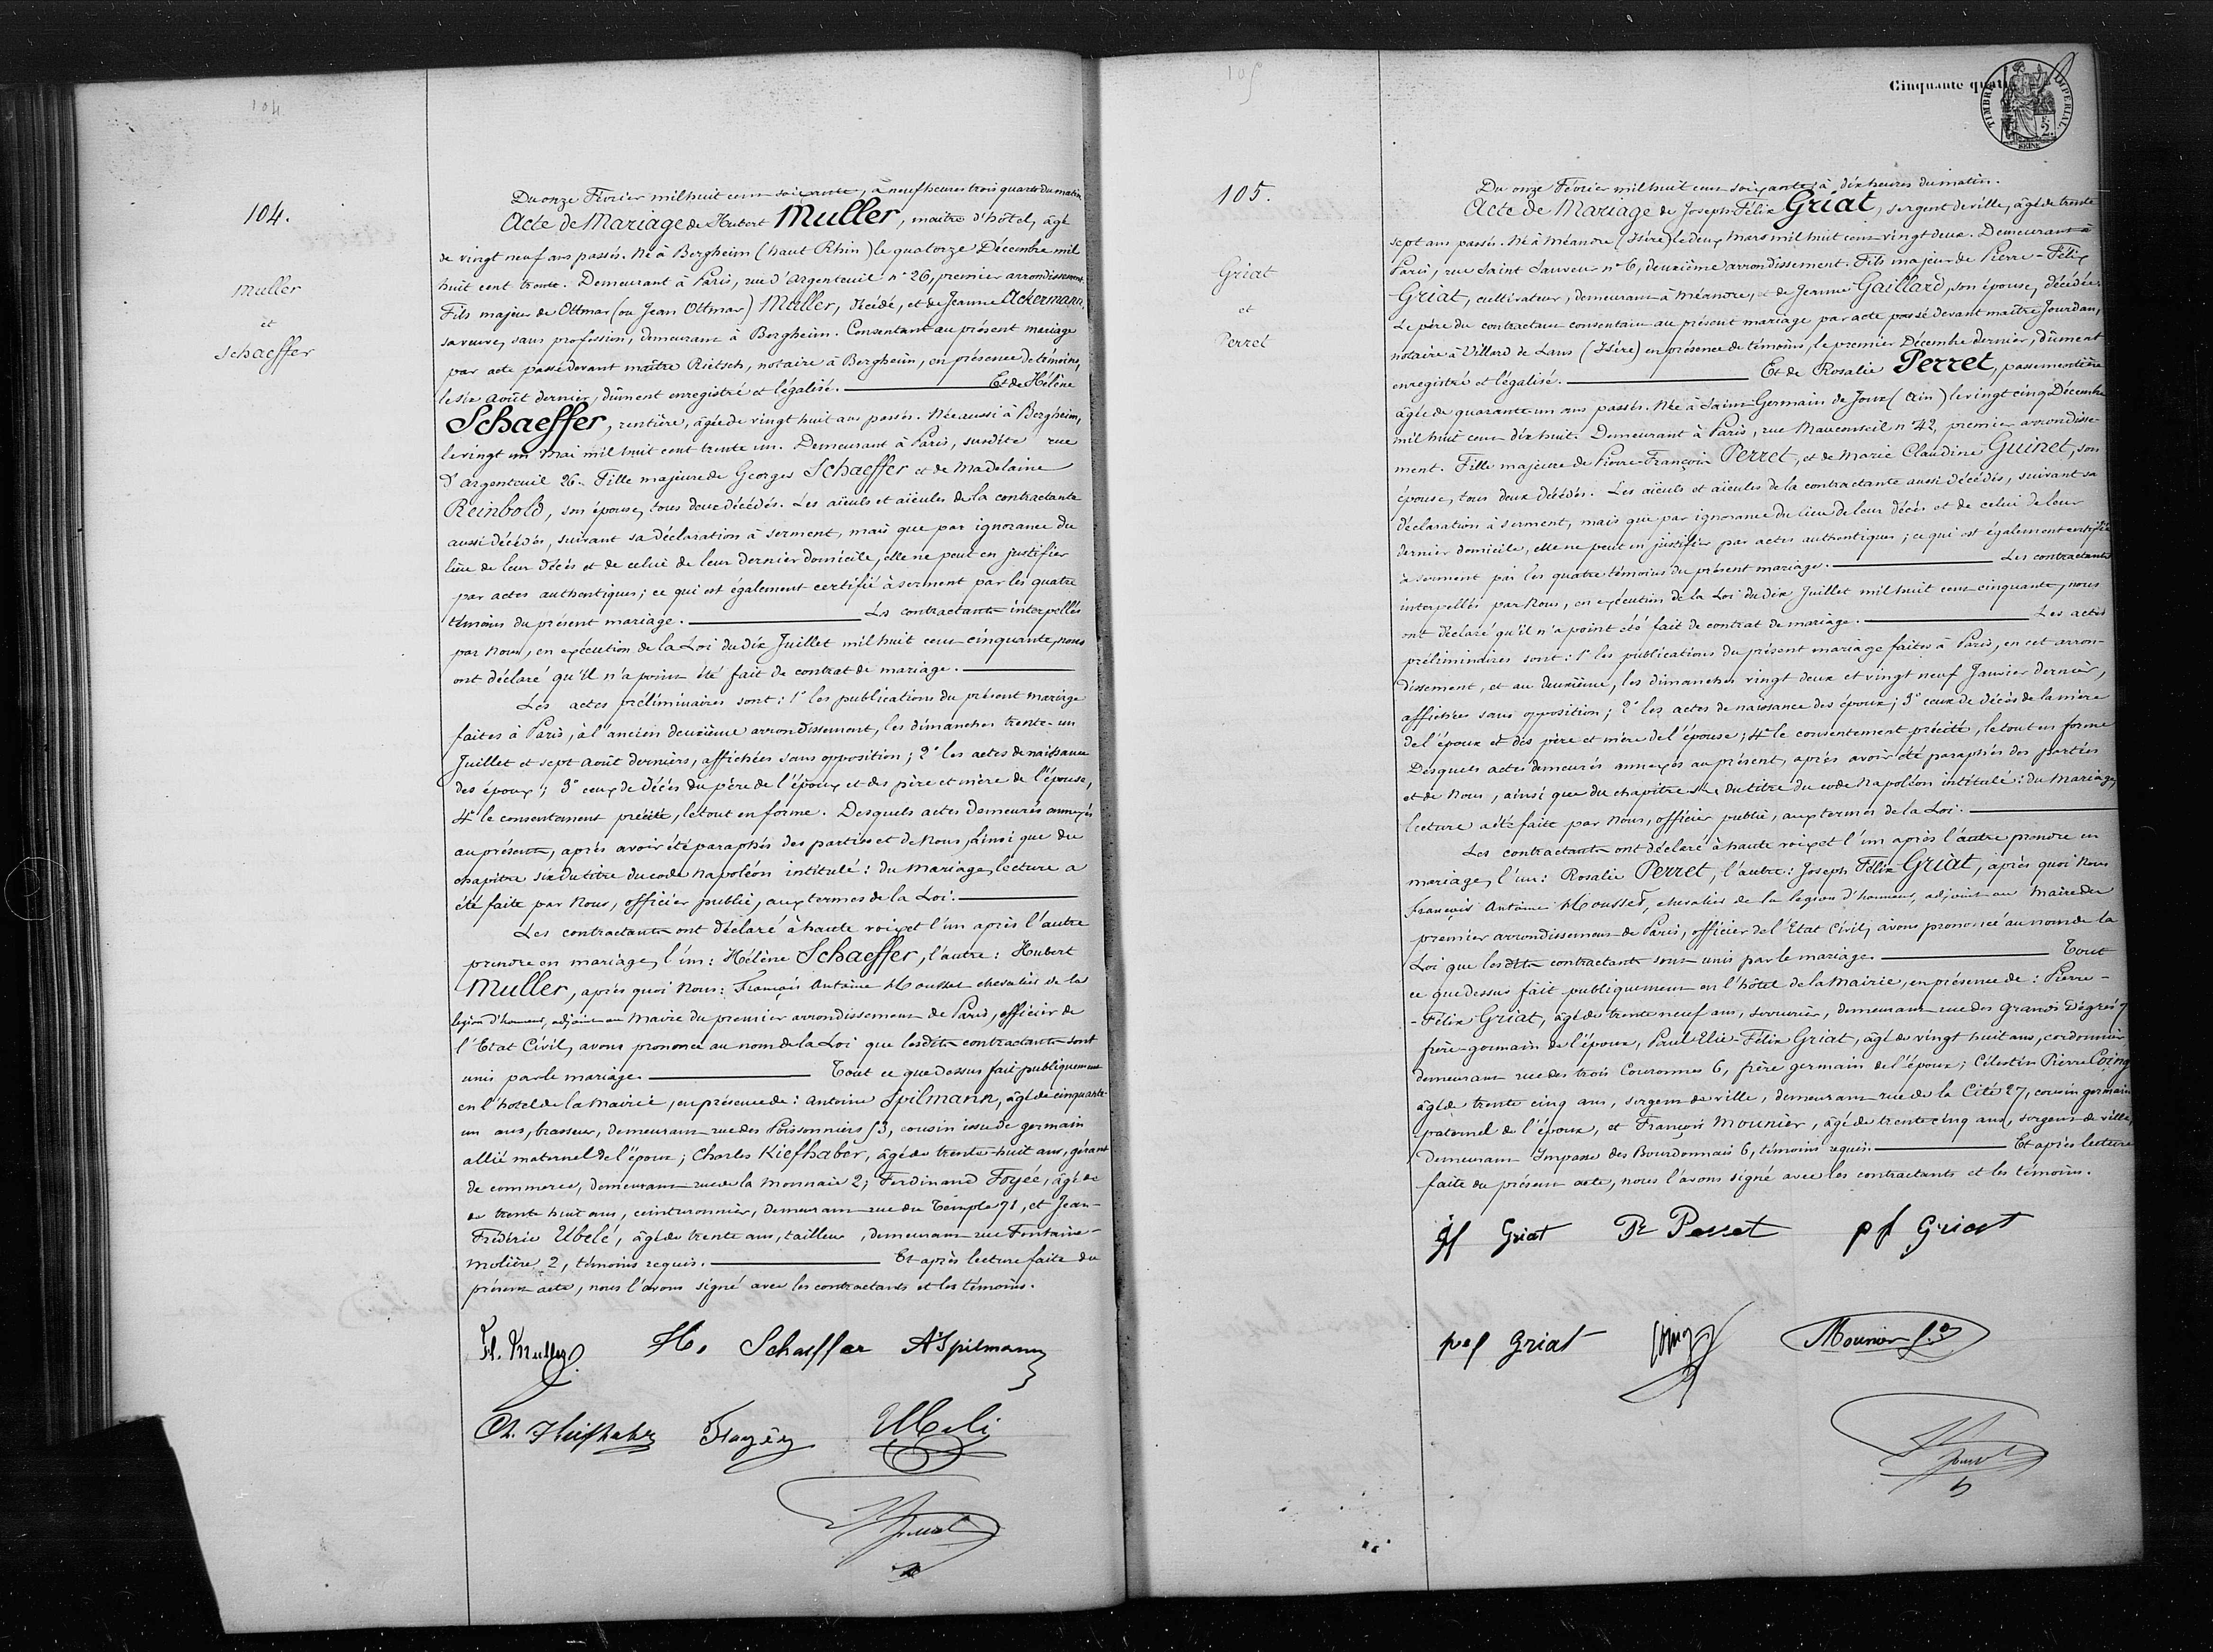 104
104.
Muller
et
Schaeffer
Du onze Février mil huit cent soixante, à neuf heures trois quarts du matin
Acte de Mariage de Hubert Muller, maître d'hôtel, âgé
de vingt neuf ans passés. Né à Bergheim (haut Rhin) le quatorze Décembre mil
huit cent trente. Demeurant à Paris, rue d'Argenteuil n° 26, premier arrondissement.
Fils majeur de Ottmar (ou Jean Ottmar) Muller, décédé, et de Jeanne Ackermann,
sa veuve, sans profession, demeurant à Bergheim. Consentant au présent mariage
par acte passé devant maître Rietsch, notaire à Bergheim, en présence de témoins,
le six Août dernier, dûment enregistré et légalisé. Et de Hélène
Schaeffer, rentière, âgée de vingt huit ans passés. Née aussi à Bergheim,
le vingt un Mai mil huit cent trente un. Demeurant à Paris, susdite rue
d'Argenteuil 26. Fille majeure de Georges Schaeffer et de Madelaine
Reinbold, son épouse, tous deux décédés. Les aïeuls et aïeules de la contractante
aussi décédés, suivant sa déclaration à serment, mais que par ignorance du
lieu de leur décès et de celui de leur dernier domicile, elle ne peut en justifier
par actes authentiques; ce qui est également certifié à serment par les quatre
témoins du présent mariage. Les contractants interpellés
par Nous, en exécution de la Loi du dix Juillet mil huit cent cinquante, nous
ont déclaré qu'il n'a point été fait de contrat de mariage.
Les actes préliminaires sont: 1° les publications du présent mariage
faites à Paris, à l'ancien deuxième arrondissement, les dimanches trente-un
Juillet et sept Août derniers, affichées sans opposition; 2° les actes de naissance
des époux; 3° ceux de décès du père de l'époux et des père et mère de l'épouse,
4° le consentement précité, le tout en forme. Desquels actes demeurés annexés
au présent, après avoir été paraphés des parties et de Nous, ainsi que du
chapitre six du titre du code Napoléon intitulé: du Mariage, lecture a
été faite par Nous, officier public, aux termes de la Loi.
Les contractants ont déclaré à haute voix et l'un après l'autre
prendre en mariage, l'un: Hélène Schaeffer, l'autre: Hubert
Muller, après quoi Nous: François Antoine Housset chevalier de la
légion d'honneur, adjoint au Maire du premier arrondissement de Paris, officier de
l'Etat Civil, avons prononcé au nom de la Loi que lesdits contractants sont
unis par le mariage. Tout ce que dessus fait publiquement
en l'hôtel de la Mairie, en présence de: Antoine Spilmann, âgé de cinquante-
un ans, brasseur, demeurant rue des Poissonniers 53, cousin issu de germain
allié maternel de l'époux; Charles Kiefhaber, âgé de trente-huit ans, gérant
de commerce, demeurant rue de la Monnaie 2; Ferdinand Foyée, âgé de
de trente huit ans, ceinturonnier, demeurant rue du Temple 71, et Jean-
Frédéric Ubelé, âgé de trente ans, tailleur, demeurant rue Fontaine-
Molière 2, témoins requis. Et après lecture faite du
présent acte, nous l'avons signé avec les contractants et les témoins.
H. Muller H. Schaeffer A Spilmann
Ch. Kiefhaber Foyée Ubelé
105
Cinquante quatre
TIMBRE IMPERIAL
2
SEINE
105.
Griat
et
Perret
Du onze Février mil huit cent soixante, à dix heures du matin.
Acte de Mariage de Joseph Félix Griat, sergent de ville, âgé de trente
sept ans passés. Né à Méandre (Isère) le deux Mars mil huit cent vingt deux. Demeurant à
Paris, rue Saint Sauveur n° 6, deuxième arrondissement. Fils majeur de Pierre-Félix
Griat, cultivateur, demeurant à Méandre, et de Jeanne Gaillard, son épouse, décédée.
Le père du contractant consentant au présent mariage par acte passé devant maître Jourdan,
notaire à Villard de Lans (Isère) en présence de témoins, le premier Décembre dernier, dûment
enregistré et légalisé. Et de Rosalie Perret, passementière
âgée de quarante-un ans passés. Née à Saint-Germain de Joux (Ain) le vingt cinq Décembre
mil huit cent dix huit. Demeurant à Paris, rue Mauconseil n° 42, premier arrondisse-
ment. Fille majeure de Pierre-François Perret, et de Marie Claudine Guinet, son
épouse, tous deux décédés. Les aïeuls et aïeules de la contractante aussi décédés, suivant sa
déclaration à serment, mais que par ignorance du lieu de leur décès et de celui de leur
dernier domicile, elle ne peut en justifier par actes authentiques; ce qui est également certifié
à serment par les quatre témoins du présent mariage. Les contractants
interpellés par Nous, en exécution de la Loi du dix Juillet mil huit cent cinquante, nous
ont déclaré qu'il n'a point été fait de contrat de mariage. Les actes
préliminaires sont: 1° les publications du présent mariage faites à Paris, en cet arron-
dissement, et au deuxième, les dimanches vingt deux et vingt neuf Janvier dernier,
affichées sans opposition; 2° les actes de naissance des époux; 3° ceux de décès de la mère
de l'époux et des père et mère de l'épouse; 4° le consentement précité, le tout en forme
Desquels actes demeurés annexés au présent, après avoir été paraphés des parties
et de Nous, ainsi que du chapitre six du titre du code Napoléon intitulé: du Mariage,
lecture a été faite par Nous, officier public, aux termes de la Loi.
Les contractants ont déclaré à haute voix et l'un après l'autre prendre en
mariage, l'un: Rosalie Perret, l'autre: Joseph Félix Griat, après quoi Nous
François Antoine Housset, chevalier de la légion d'honneur, adjoint au Maire du
premier arrondissement de Paris, officier de l'Etat Civil, avons prononcé au nom de la
Loi que lesdits contractants sont unis par le mariage. Tout
ce que dessus fait publiquement en l'hôtel de la Mairie, en présence de: Pierre-
-Félix Griat, âgé de trente neuf ans, serrurier, demeurant rue des Grands Dégrés 7
frère-germain de l'époux, Paul Elie-Félix Griat, âgé de vingt huit ans, cordonnier
demeurant rue des trois Couronnes 6, frère germain de l'époux; Célestin Pierre Coing
âgé de trente cinq ans, sergent de ville, demeurant rue de la Cité 27, cousin germain
paternel de l'époux, et François Mounier, âgé de trente cinq ans, sergent de ville,
demeurant Impasse des Bourdonnais 6, témoins requis. Et après lecture
faite du présent acte, nous l'avons signé avec les contractants et les témoins.
jf Griat Re Perret pf Griat
pef Griat Coing Mounier fs